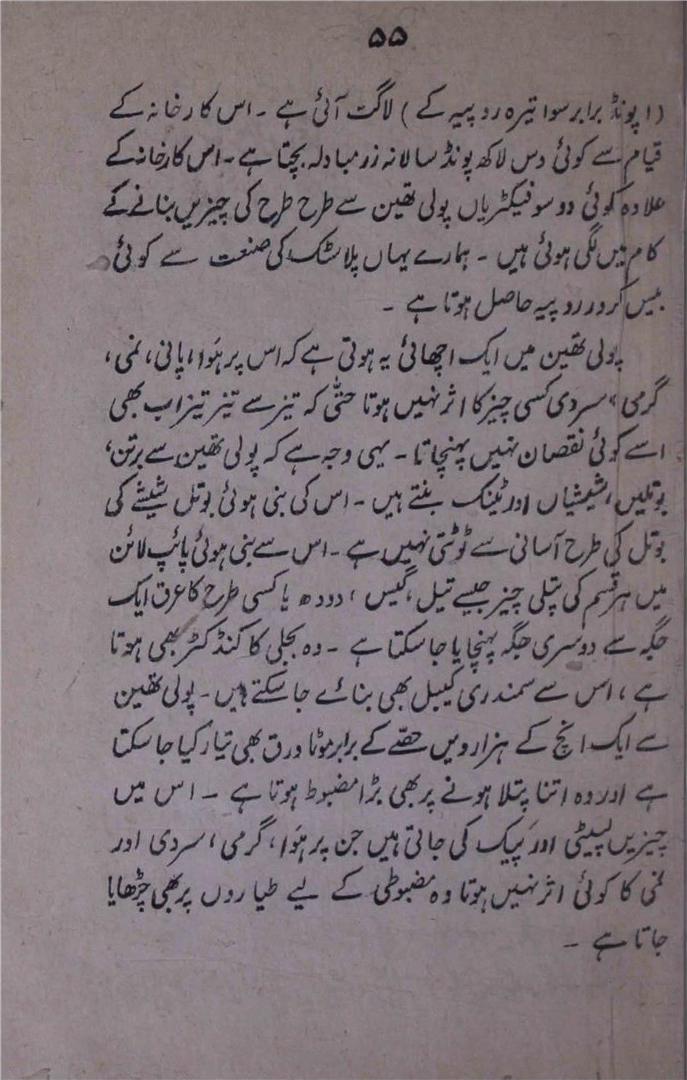 ۵۵
(۱ پونڈ برابر سوا تیرہ روپیہ کے) لاگت آئی ہے ۔ اس کارخانہ کے
قیام سے کوئی دس لاکھ پونڈ سالانہ زر مبادلہ بچتا ہے ۔ اس کارخانہ کے
علاوہ کوئی دو سو فیکٹریاں پولی تھین سے طرح طرح کی چیزیں بنانے کے
کام میں لگی ہوئی ہیں ۔ ہمارے یہاں پلاسٹک کی صنعت سے کوئی
بیس کروڑ روپیہ حاصل ہوتا ہے ۔
پولی تھین میں ایک اچھائی یہ ہوتی ہے کہ اس پر ہَوا، پانی، نمی،
گرمی، سردی کسی چیز کا اثر نہیں ہوتا حتّٰی کہ تیز سے تیز تیزاب بھی
اسے کوئی نقصان نہیں پہنچاتا ۔ یہی وجہ ہے کہ پولی تھین سے برتن،
بوتلیں، شیشیاں اور ٹینک بنتے ہیں ۔ اس کی بنی ہوئی بوتل شیشے کی
بوتل کی طرح آسانی سے ٹوٹتی نہیں ہے ۔ اس سے بنی ہوئی پائپ لائن
میں ہر قسم کی پتلی چیز جیسے تیل، گیس، دودھ یا کسی طرح کا عرق ایک
جگہ سے دوسری جگہ پہنچایا جا سکتا ہے ۔ وہ بجلی کا کنڈکٹر بھی ہوتا
ہے، اس سے سمندری کیبل بھی بنائے جا سکتے ہیں ۔ پولی تھین
سے ایک انچ کے ہزارویں حصّے کے برابر موٹا ورق بھی تیار کیا جا سکتا
ہے اور وہ اتنا پتلا ہونے پر بھی بڑا مضبوط ہوتا ہے ۔ اس میں
چیزیں لپیٹی اور پیک کی جاتی ہیں جن پر ہَوا، گرمی، سردی اور
نمی کا کوئی اثر نہیں ہوتا وہ مضبوطی کے لیے طیاروں پر بھی چڑھایا
جاتا ہے ۔